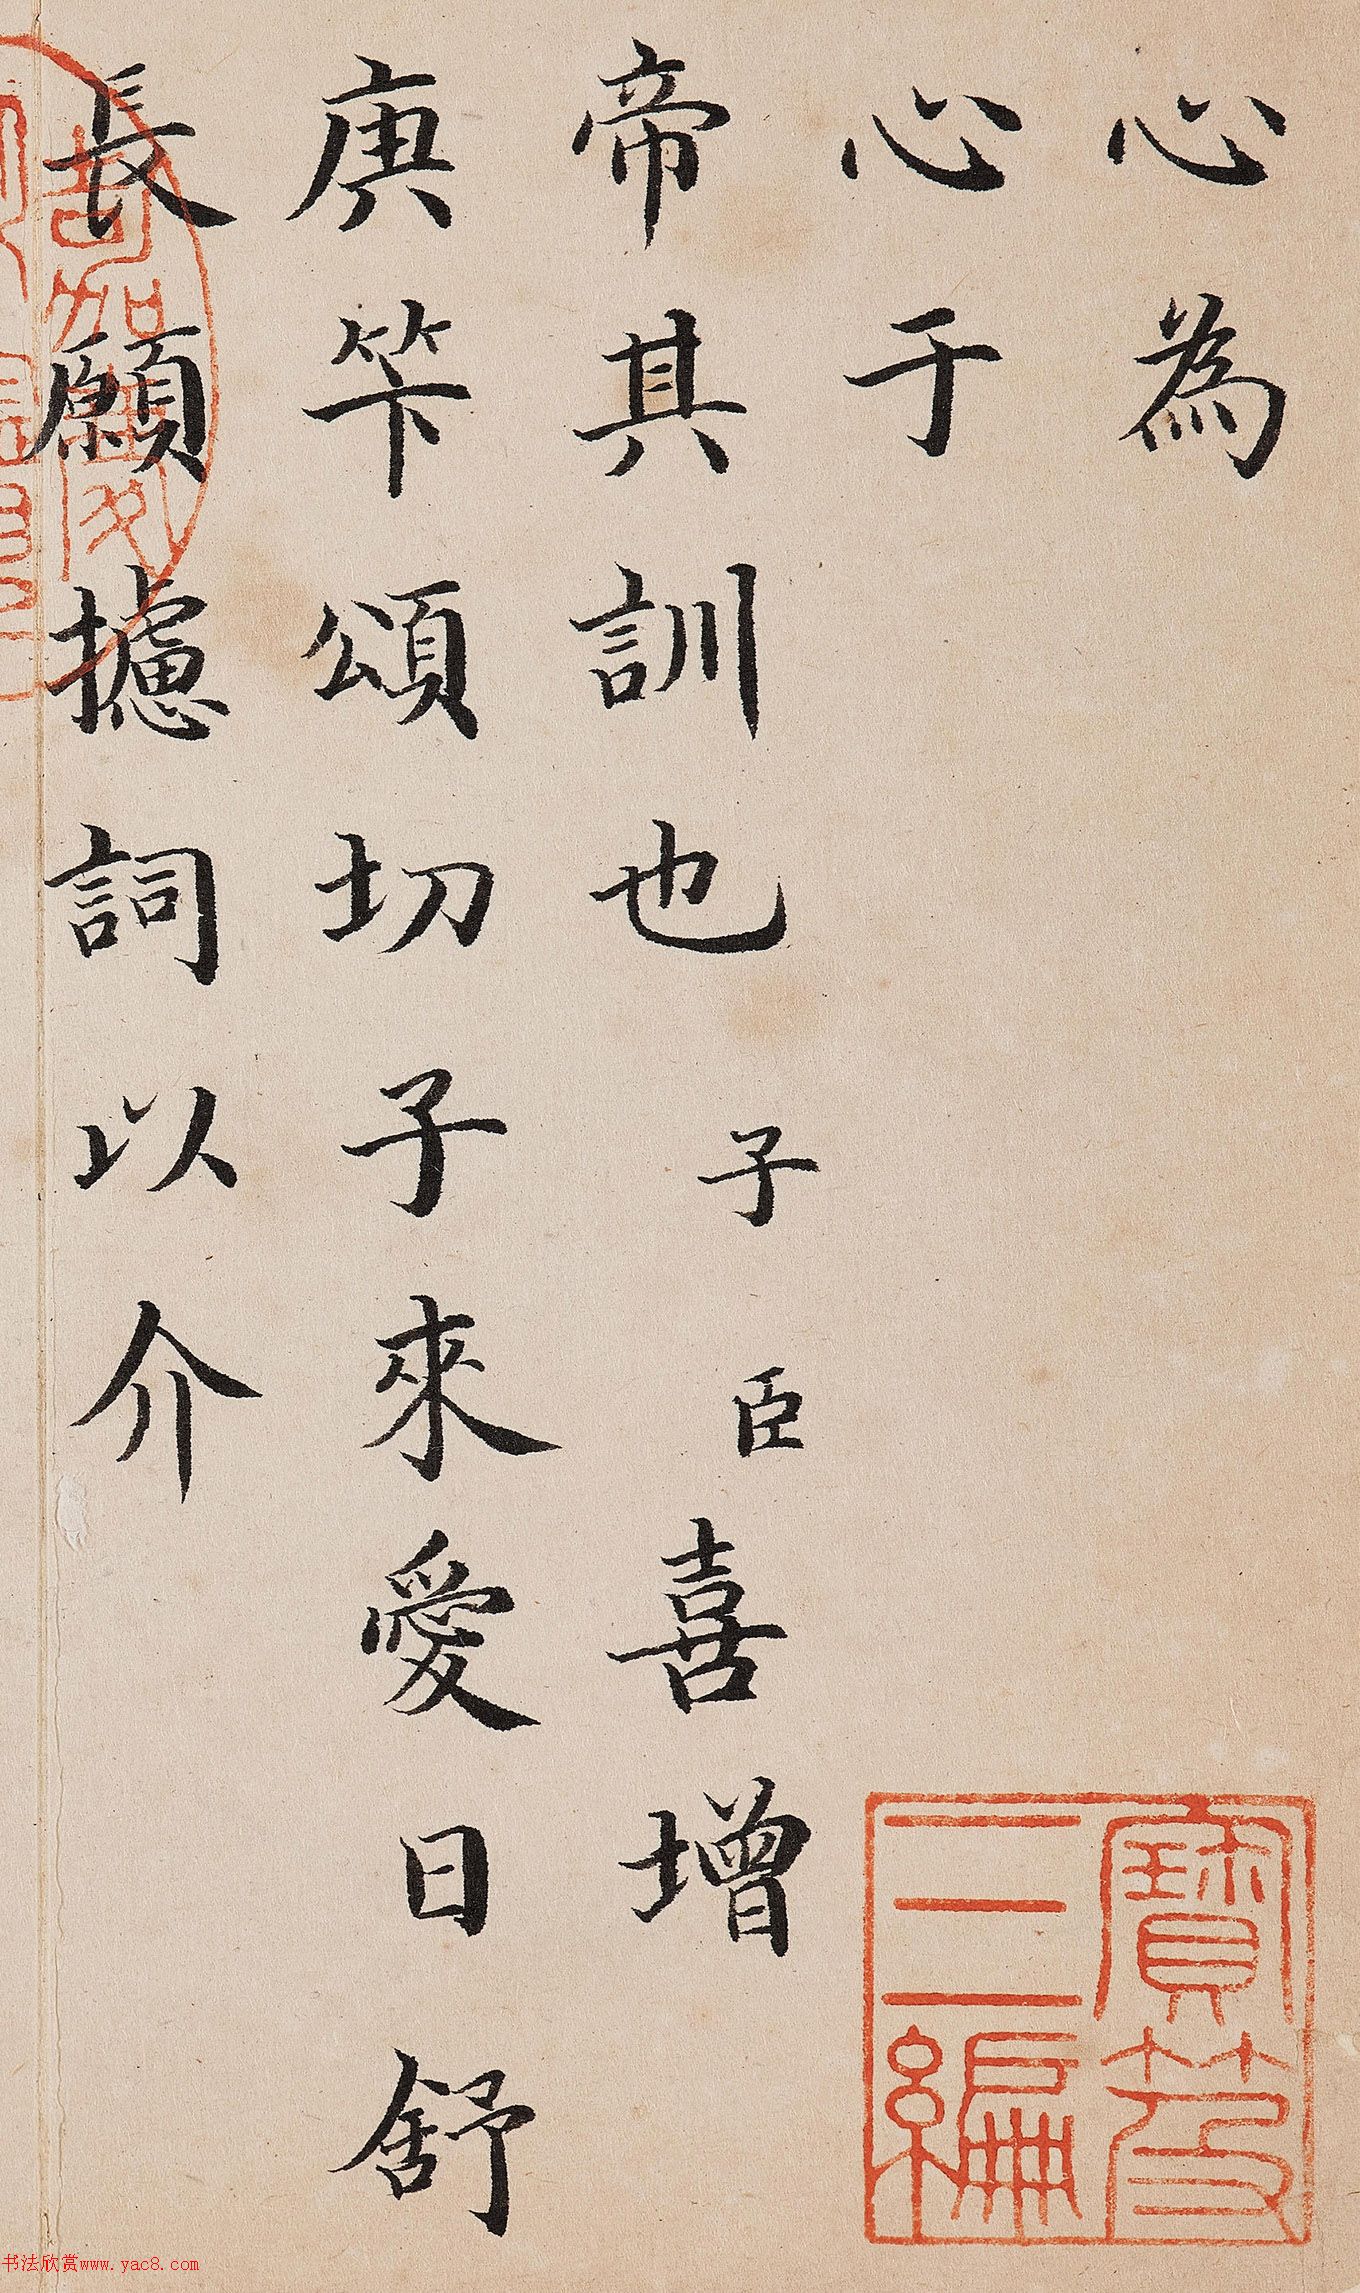 心為
心于
帝其訓也子臣喜增
庚笇頌切子來愛日舒
長願攄詞以介
寶笈
三編
书法欣赏www.yac8.com